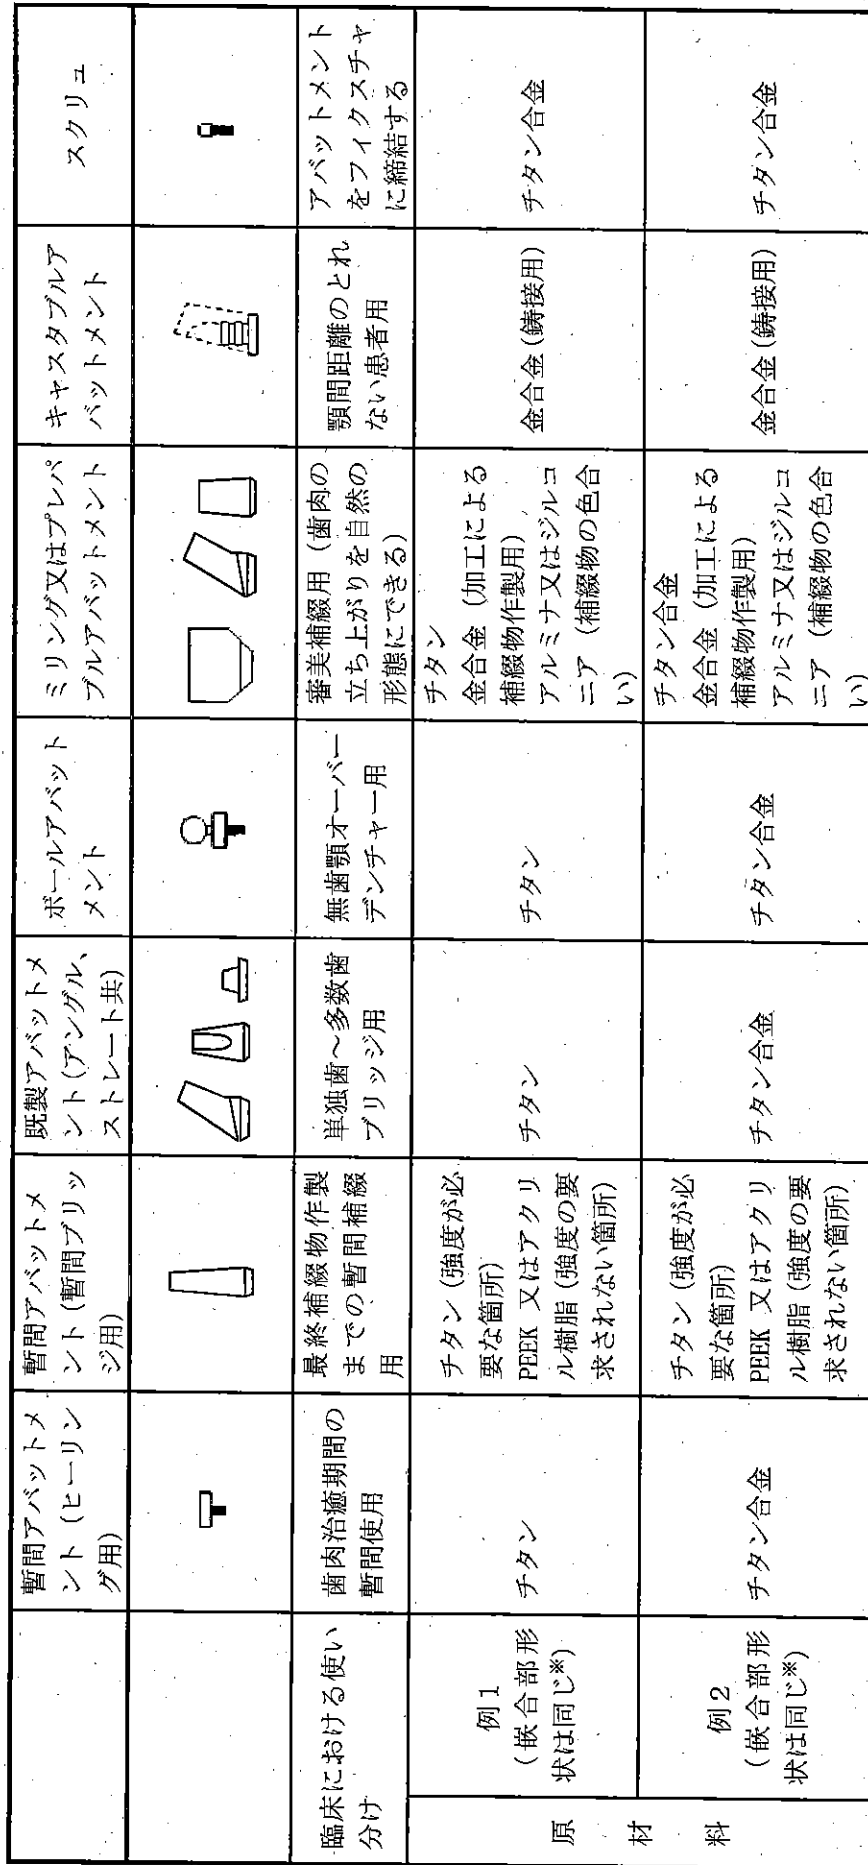 暫間アバットメ
ント(ヒーリン
グ用)
暫間アバットメ
ント(暫間ブリッ
ジ用)
既製アバットメ
ント(アングル、
ストレート共)
ボールアバット
メント
ミリング又はプレパ
ブルアバットメント
キャスタブルア
バットメント
スクリュ
臨床における使い
分け
歯肉治癒期間の
暫間使用
最終補綴物作製
までの暫間補綴
用
単独歯~多数歯
ブリッジ用
無歯顎オーバー
デンチャー用
審美補綴用(歯肉の
立ち上がりを自然の
形態にできる)
顎間距離のとれ
ない患者用
アバットメント
をフィクスチャ
に締結する
原材料
例1
(嵌合部形
状は同じ※)
チタン
チタン(強度が必
要な箇所)
PEEK 又はアクリ
ル樹脂(強度の要
求されない箇所)
チタン
チタン
チタン
金合金(加工による
補綴物作製用)
アルミナ又はジルコ
ニア(補綴物の色合
い)
金合金(鋳接用)
チタン合金
例2
(嵌合部形
状は同じ※)
チタン合金
チタン(強度が必
要な箇所)
PEEK 又はアクリ
ル樹脂(強度の要
求されない箇所)
チタン合金
チタン合金
チタン合金
金合金(加工による
補綴物作製用)
アルミナ又はジルコ
ニア(補綴物の色合
い)
金合金(鋳接用)
チタン合金